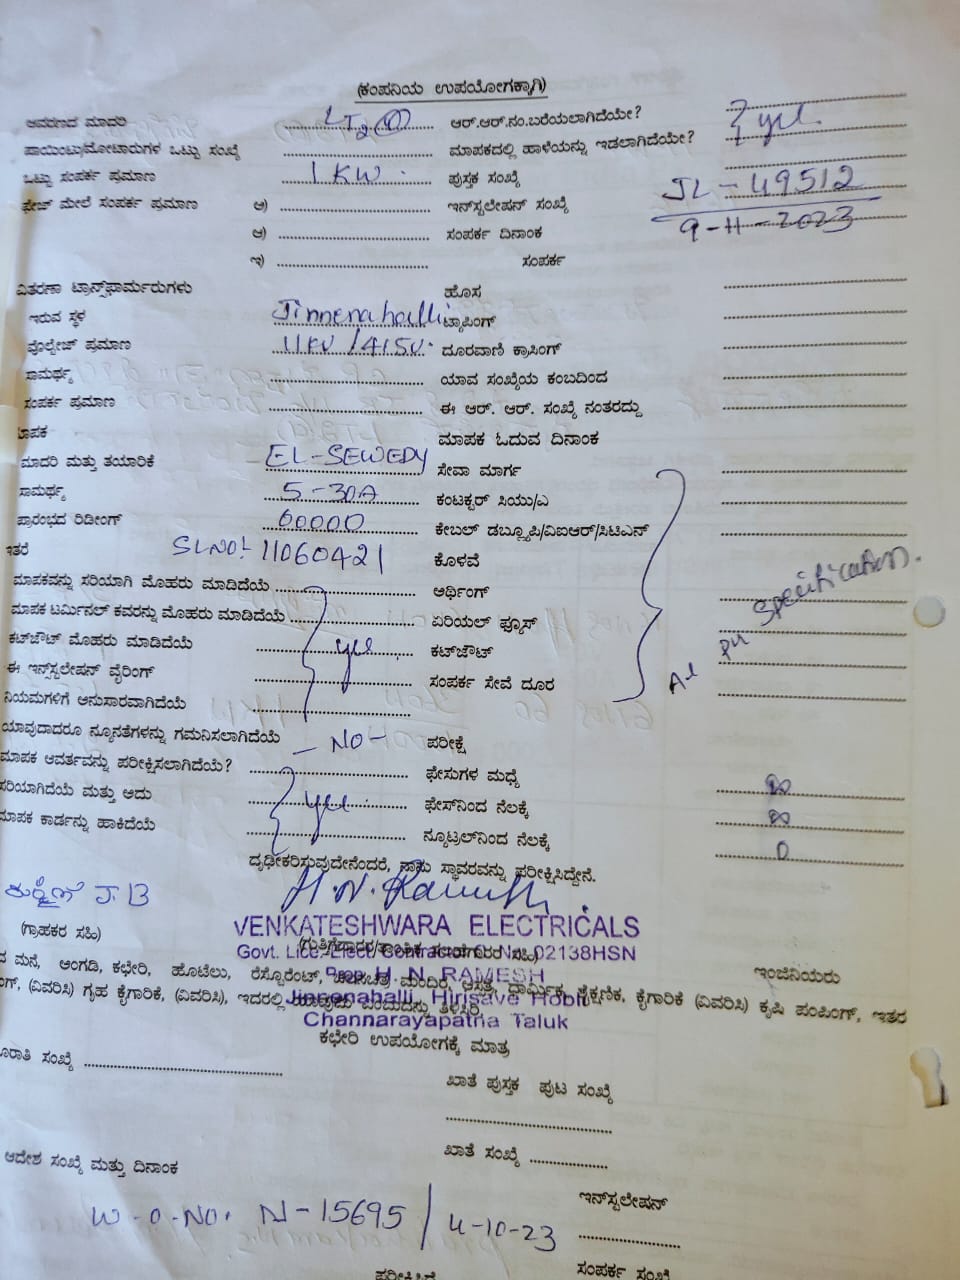 (ಕಂಪನಿಯ ಉಪಯೋಗಕ್ಕಾಗಿ)
ಆವರಣದ ಮಾದರಿ LT2(a) ಆರ್.ಆರ್.ನಂ.ಬರೆಯಲಾಗಿದೆಯೇ? yes
ಪಾಯಿಂಟು/ಮೋಟಾರುಗಳ ಒಟ್ಟು ಸಂಖ್ಯೆ ಮಾಪಕದಲ್ಲಿ ಹಾಳೆಯನ್ನು ಇಡಲಾಗಿದೆಯೇ?
ಒಟ್ಟು ಸಂಪರ್ಕ ಪ್ರಮಾಣ 1 KW ಪುಸ್ತಕ ಸಂಖ್ಯೆ JL-49512
ಫೇಜ್ ಮೇಲೆ ಸಂಪರ್ಕ ಪ್ರಮಾಣ ಅ) ಇನ್‌ಸ್ಟಲೇಷನ್ ಸಂಖ್ಯೆ 9-11-2023
ಆ) ಸಂಪರ್ಕ ದಿನಾಂಕ
ಇ) ಸಂಪರ್ಕ
ವಿತರಣಾ ಟ್ರಾನ್ಸ್‌ಫಾರ್ಮರುಗಳು ಹೊಸ
ಇರುವ ಸ್ಥಳ Jinnenahalli ಟ್ಯಾಪಿಂಗ್
ವೋಲ್ಟೇಜ್ ಪ್ರಮಾಣ 11KV/415V ದೂರವಾಣಿ ಕ್ರಾಸಿಂಗ್
ಸಾಮರ್ಥ್ಯ ಯಾವ ಸಂಖ್ಯೆಯ ಕಂಬದಿಂದ
ಸಂಪರ್ಕ ಪ್ರಮಾಣ ಈ ಆರ್. ಆರ್. ಸಂಖ್ಯೆ ನಂತರದ್ದು
ಮಾಪಕ ಓದುವ ದಿನಾಂಕ
ಮಾದರಿ ಮತ್ತು ತಯಾರಿಕೆ EL-SEWEDY ಸೇವಾ ಮಾರ್ಗ
ಸಾಮರ್ಥ್ಯ 5-30A ಕಂಟಕ್ಟರ್ ಸಿಯು/ಎ
ಪ್ರಾರಂಭದ ರಿಡೀಂಗ್ 00000 ಕೇಬಲ್ ಡಬ್ಲ್ಯೂಪಿ/ವಿಐಆರ್/ಸಿಟಿಎನ್
ಇತರೆ SLNO: 11060421 ಕೊಳವೆ
ಮಾಪಕವನ್ನು ಸರಿಯಾಗಿ ಮೊಹರು ಮಾಡಿದೆಯೆ ಆರ್ಥಿಂಗ್
ಮಾಪಕ ಟರ್ಮಿನಲ್ ಕವರನ್ನು ಮೊಹರು ಮಾಡಿದೆಯೆ ಏರಿಯಲ್ ಫ್ಯೂಸ್ specification.
ಕಟ್‌ಔಟ್ ಮೊಹರು ಮಾಡಿದೆಯೆ yes ಕಟ್‌ಔಟ್
ಈ ಇನ್‌ಸ್ಟಲೇಷನ್ ವೈರಿಂಗ್ ಸಂಪರ್ಕ ಸೇವೆ ದೂರ
ನಿಯಮಗಳಿಗೆ ಅನುಸಾರವಾಗಿದೆಯೆ
ಯಾವುದಾದರೂ ನ್ಯೂನತೆಗಳನ್ನು ಗಮನಿಸಲಾಗಿದೆಯೆ -NO- ಪರೀಕ್ಷೆ
ಮಾಪಕ ಆವರ್ತವನ್ನು ಪರೀಕ್ಷಿಸಲಾಗಿದೆಯೆ? ಫೇಸುಗಳ ಮಧ್ಯೆ ∞
ಸರಿಯಾಗಿದೆಯೆ ಮತ್ತು ಆದು yes ಫೇಸ್‌ನಿಂದ ನೆಲಕ್ಕೆ ∞
ಮಾಪಕ ಕಾರ್ಡನ್ನು ಹಾಕಿದೆಯೆ ನ್ಯೂಟ್ರಲ್‌ನಿಂದ ನೆಲಕ್ಕೆ 0
ದೃಢೀಕರಿಸುವುದೇನೆಂದರೆ, ನಾನು ಸ್ಥಾವರವನ್ನು ಪರೀಕ್ಷಿಸಿದ್ದೇನೆ.
J.B
VENKATESHWARA ELECTRICALS
(ಗ್ರಾಹಕರ ಸಹಿ)
Govt. Lice. Elect. Contractor 02138HSN
Prop H. N. RAMESH ಇಂಜಿನಿಯರು
ಮನೆ, ಅಂಗಡಿ, ಕಛೇರಿ, ಹೊಟೆಲು, ರೆಸ್ಟೊರೆಂಟ್, ಮಂದಿರ, ಧಾರ್ಮಿಕ, ಶೈಕ್ಷಣಿಕ, ಕೈಗಾರಿಕೆ (ವಿವರಿಸಿ) ಕೃಷಿ ಪಂಪಿಂಗ್, ಇತರ
(ವಿವರಿಸಿ) ಗೃಹ ಕೈಗಾರಿಕೆ, (ವಿವರಿಸಿ), ಇದರಲ್ಲಿ ಯಾವುದು ಎಂಬುದನ್ನು ತಿಳಿಸಿರಿ
Jinnenahalli, Hirisave Hobli
Channarayapatna Taluk
ಕಛೇರಿ ಉಪಯೋಗಕ್ಕೆ ಮಾತ್ರ
ಸಂಖ್ಯೆ
ಖಾತೆ ಪುಸ್ತಕ ಪುಟ ಸಂಖ್ಯೆ
ಖಾತೆ ಸಂಖ್ಯೆ
ಆದೇಶ ಸಂಖ್ಯೆ ಮತ್ತು ದಿನಾಂಕ
ಇನ್‌ಸ್ಟಲೇಷನ್
W.O.NO. N-15695/4-10-23
ಸಂಪರ್ಕ ಸಂಖ್ಯೆ